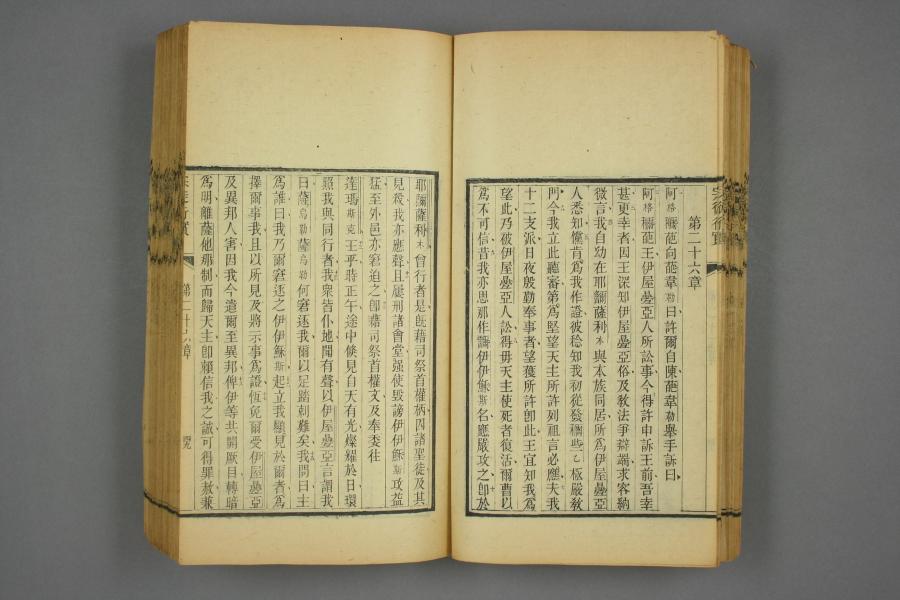 第二十六章
阿格𥠖葩向葩韋勒曰許爾自陳葩韋勒舉手訴曰
阿格𥠖葩王伊屋疊亞人所訟事今得許申訴王前吾幸
甚更幸者因王深知伊屋疊亞俗及敎法爭辯端求客納
微言我自幼在耶爾薩利木與本族同居所為伊屋疊亞
人悉知儻肯爲我作證彼稔知我初從發𥠖些乙極嚴敎
門今我立此聽審第爲堅望天主所許列祖言必應夫我
十二支派日夜殷勤奉事者望獲所許卽此王宜知我爲
望此乃被伊屋疊亞人訟得毋天主使死者復活爾曹以
爲不可信昔我亦思那作麗伊伊穌斯名應嚴攻之卽於
耶爾薩利木曾行者是旣藉司祭首權柄囚諸聖徒及其
見殺我亦應聲且屢刑諸會堂强使毁謗伊伊穌斯攻益
猛至外邑亦窘迫之卽藉司祭首權文及奉委往
達瑪斯克王乎時正午途中倐見自天有光燦耀於日環
照我與同行者我衆皆仆地聞有聲以伊屋疊亞言謂我
曰薩烏勒薩烏勒何窘逐我爾以足踏刺難矣我問曰主
爲誰曰我乃爾窘逐之伊伊穌斯起立我顯見於爾者爲
擇爾事我且以所見及將示事爲證恆免爾受伊屋疊亞
及異邦人害因我今遣爾至異邦俾伊等共開厥目轉暗
爲明離薩他那制而歸天主卽賴信我之誠可得罪赦兼
宗徒行實
第二十六章